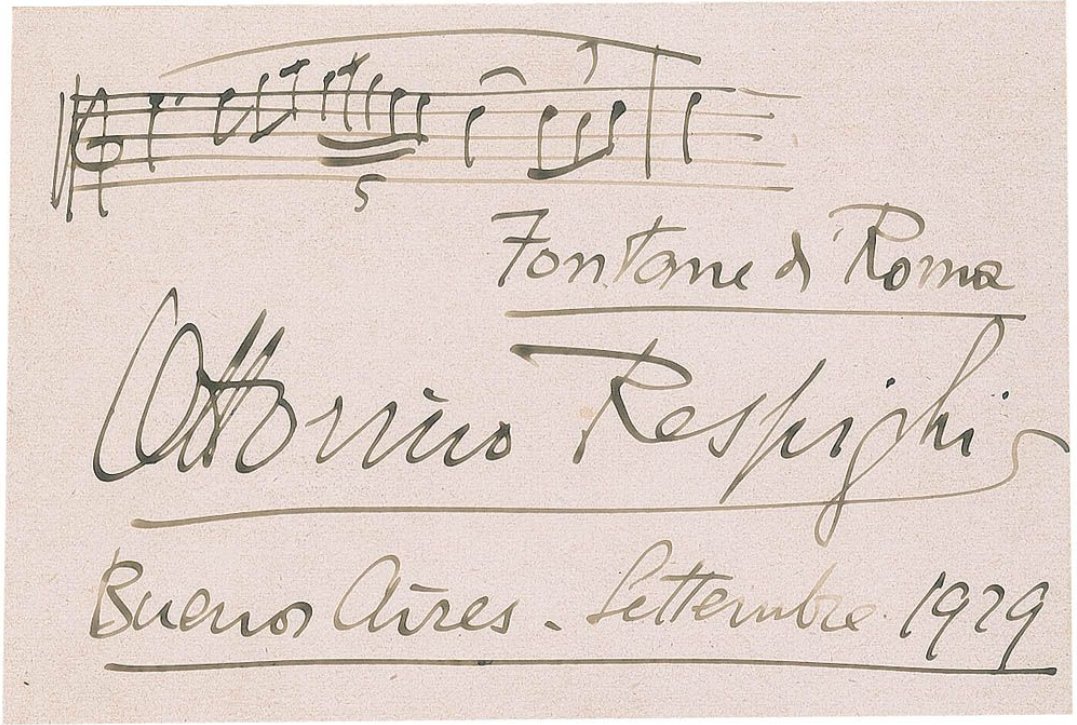 5
Fontane di Roma
Ottorino Respighi
Buenos Aires. Settembre 1929